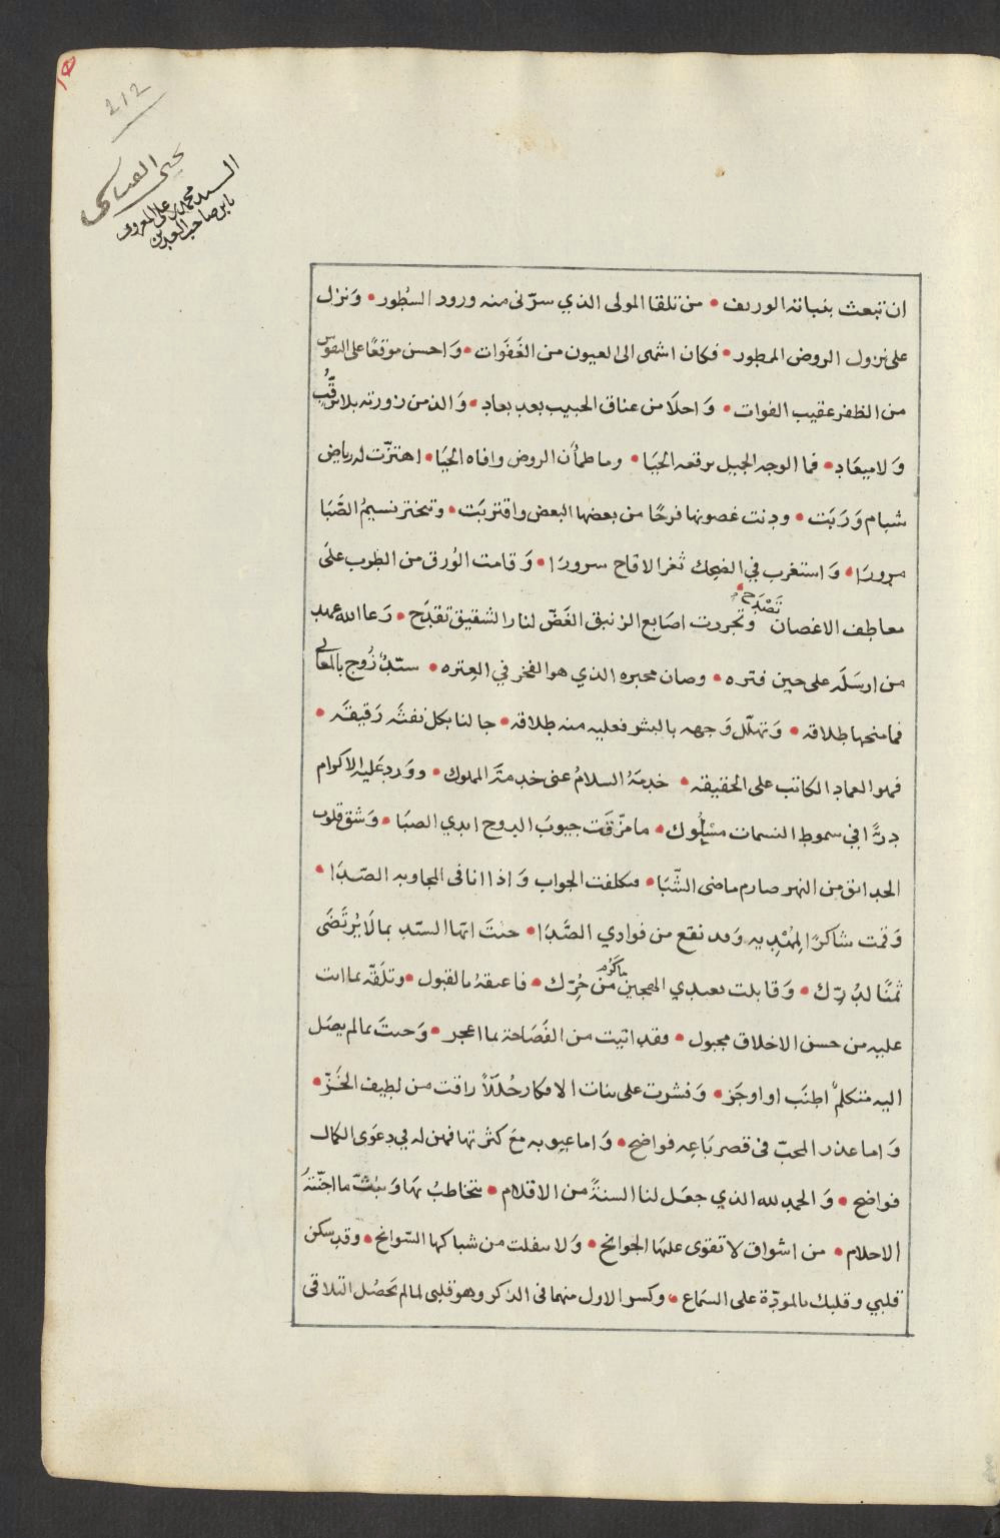 212
يحيى العباسي
السيد محمد بن علي المعروف
بابن صاحب
ان تبعث بنباته الوريف • من تلقا المولى الذي سرّني منه ورود السُطور • وَنزل
على نزول الروض الممطور • فكان اشهى الى العيون من الغَفَوات • وَاحسن موقعًا على النفوس
من الظفر عقيب الفوات • وَاحلَا من عناق الحبيب بعد بعاد • وَالذ من زورته بلا ترقُّب
وَلا ميعَاد • فما الوجه الجميل برقعه الحيَا • وما طمأن الروض وافاه الحيَا • اهتزّت له رياض
شبام وَرَبَت • ودنت غصونها فرحًا من بعضها البعض واقتربَت • وتبختر نسيمُ الصَّبَا
مرورًا • وَاستغرب في الضحك ثغر الاقاح سرورًا • وَقامت الوُرق من الطرب علَى
معاطف الاغصان تَصْدَح • وتجردت اصَابع الزنبق الغَضّ لنار الشقيق تقدَح • رَعا الله عهد
من ارسَلَه على حين فتره • وصان محبره الذي هو الفخر في العِتره • ستّ زُوج بالمعالي
فما منحها طلاقه • وَتهلّل وَجهه بالبشر فعليه منه طلاقه • جا لنا بكل نفثَه رَقيقَه •
فهو العماد الكاتب على الحقيقه • خدمَهُ السلامُ عنى خدمةَ المملوك • ووَرد عَليه الاكرام
درًّا في سموط النسمات مسْلُوك • ما مزّقَت جيوبَ الدوح ايدي الصبَا • وَشق قلوب
الحدائق من النهر صارم ماضى الشّبَا • فكلفت الجواب وَاذا انا فى المجاوبه الصّدَا •
وَقمت شاكرًا لِمُهْدِيه وَقد نقع من فوادي الصَّدَا • حيث ايّها السيّد بما لَا يُرتَضَى
ثمنًا لدُرّك • وَقابلت بعبدي الهجين من مَاكَرُم من حُرّك • فاعتقهُ بالقبول • وتلَقّه بما انت
عليه من حسن الاخلاق مجبول • فقد اتيت من الفَصَاحة بما اعجز • وَجئتَ بما لم يصَل
اليه متكلمٌ اطنَب او اوجَز • وَنشرت على بنات الافكار حُلَلًا راقت من لطيف الخَزّ •
وَاما عذر المحبّ فى قصر بَاعِه فواضح • وَاما عيوبه معَ كثرتها فهن له في دعوَى الكمال
فواضح • وَالحمد لله الذي جعَل لنا السنةً من الاقلام • تتخاطبُ بهَا وَتبُثّ ما اجنّتهُ
الاحلام • من اشواق لا تقوى عليهَا الجوانح • وَلا ينفلت من شباكها السّوانح • وقد سكن
قلبي وقلبك بالمودّة على السمَاع • وكسر الاول منهما فى الذكر وهو قلبى لما لم تَحصُل التلاقى